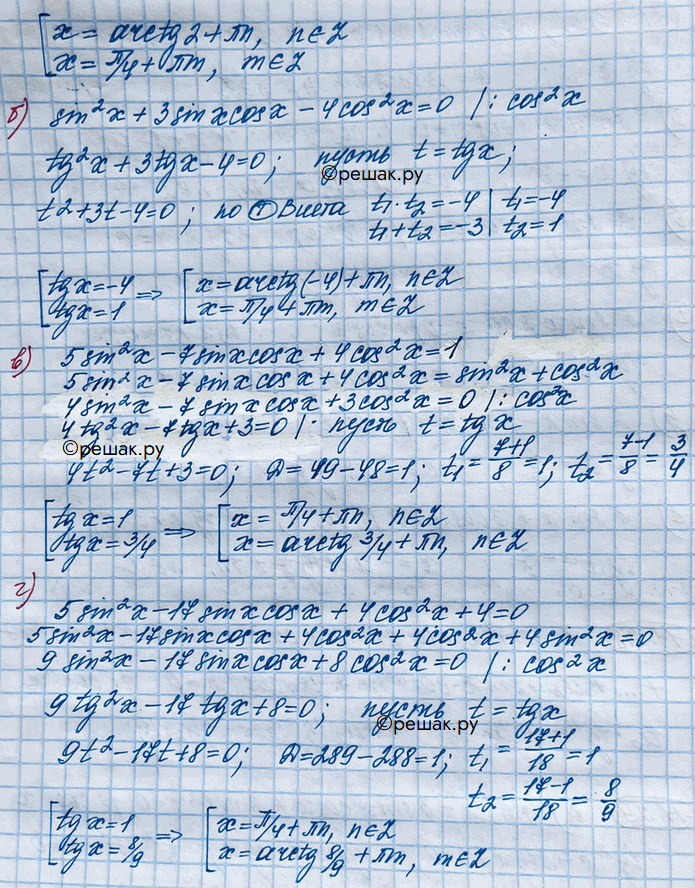 [ x = arctg 2 + πn, n∈Z
[ x = π/4 + πm, m∈Z
б) sin²x + 3 sin x cos x − 4 cos²x = 0 |: cos²x
tg²x + 3 tg x − 4 = 0; пусть t = tg x;
©решак.ру
t² + 3t − 4 = 0; по Т Виета t₁·t₂ = −4 | t₁ = −4
t₁ + t₂ = −3 | t₂ = 1
[ tg x = −4 => [ x = arctg(−4) + πn, n∈Z
[ tg x = 1 [ x = π/4 + πm, m∈Z
в) 5 sin²x − 7 sin x cos x + 4 cos²x = 1
5 sin²x − 7 sin x cos x + 4 cos²x = sin²x + cos²x
4 sin²x − 7 sin x cos x + 3 cos²x = 0 |: cos²x
4 tg²x − 7 tg x + 3 = 0 |· пусть t = tg x
©решак.ру
4t² − 7t + 3 = 0; D = 49 − 48 = 1; t₁ = (7+1)/8 = 1; t₂ = (7−1)/8 = 3/4
[ tg x = 1 => [ x = π/4 + πn, n∈Z
[ tg x = 3/4 [ x = arctg 3/4 + πn, n∈Z
г)
5 sin²x − 17 sin x cos x + 4 cos²x + 4 = 0
5 sin²x − 17 sin x cos x + 4 cos²x + 4 cos²x + 4 sin²x = 0
9 sin²x − 17 sin x cos x + 8 cos²x = 0 |: cos²x
9 tg²x − 17 tg x + 8 = 0; пусть t = tg x
©решак.ру
9t² − 17t + 8 = 0; D = 289 − 288 = 1; t₁ = (17+1)/18 = 1
t₂ = (17−1)/18 = 8/9
[ tg x = 1 => [ x = π/4 + πn, n∈Z
[ tg x = 8/9 [ x = arctg 8/9 + πm, m∈Z